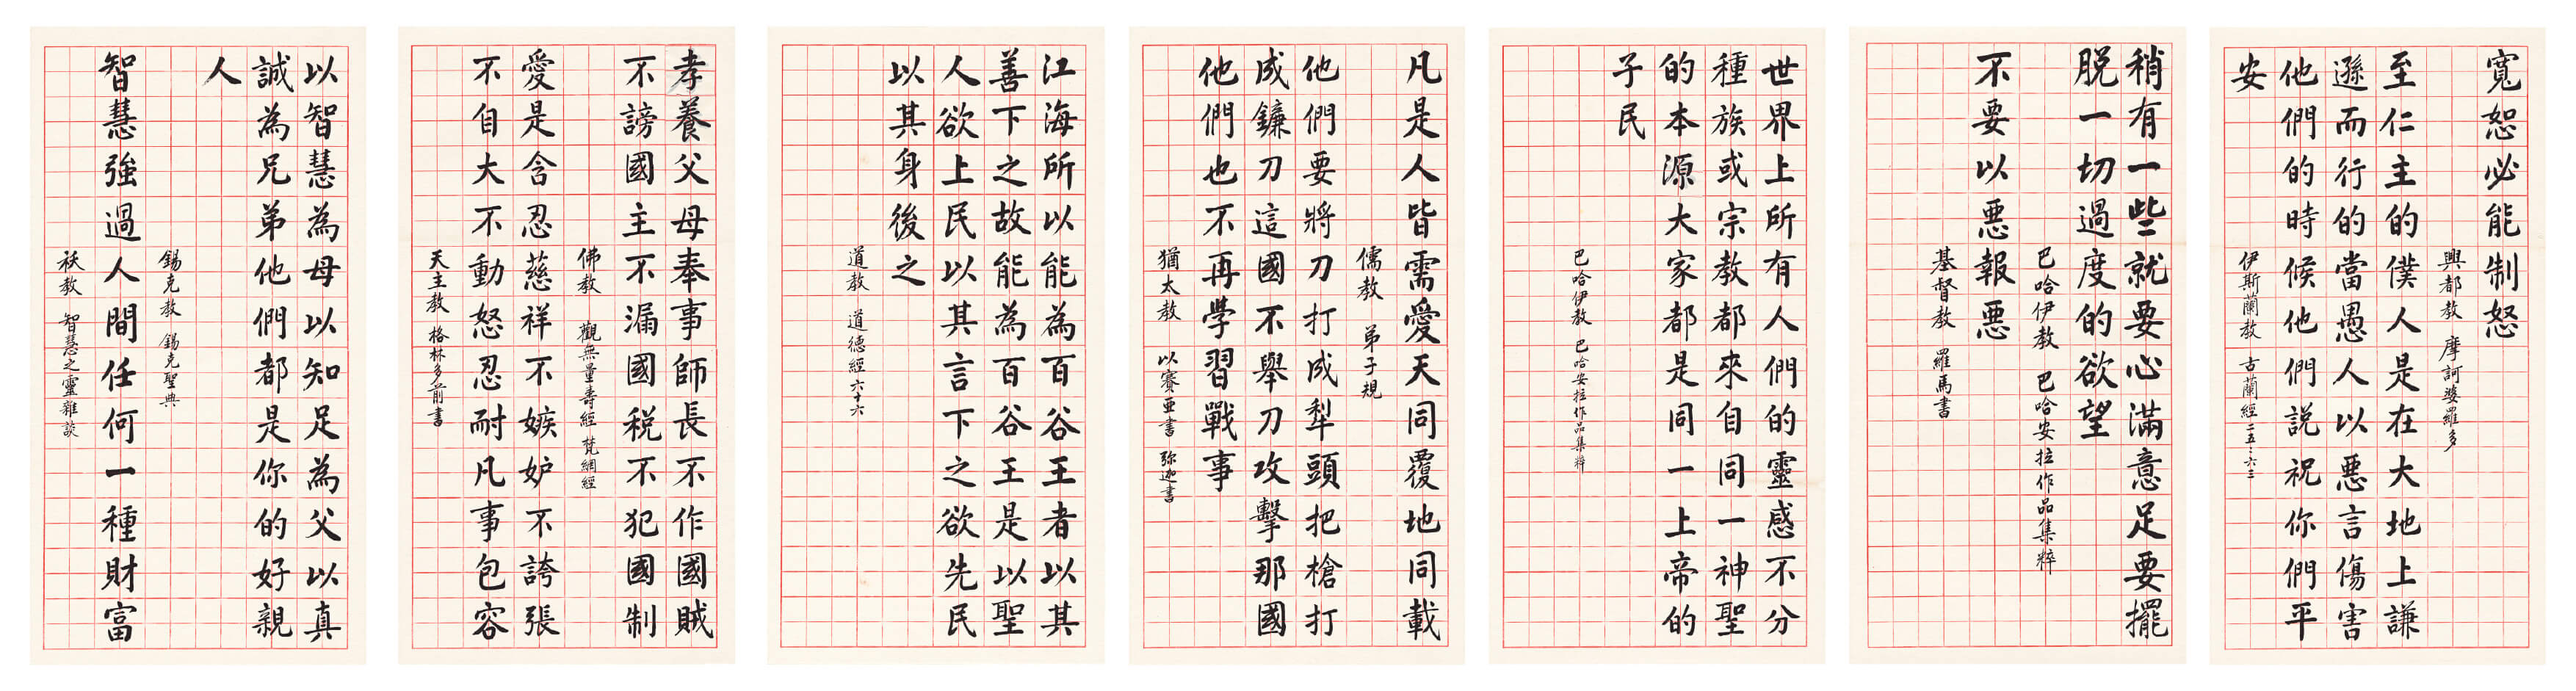 寬恕必能制怒
興都教 摩訶婆羅多
至仁主的僕人是在大地上謙
遜而行的當愚人以惡言傷害
他們的時候他們說祝你們平
安
伊斯蘭教 古蘭經二五:六三
稍有一些就要心滿意足要擺
脫一切過度的欲望
巴哈伊教 巴哈安拉作品集粹
不要以惡報惡
基督教 羅馬書
世界上所有人們的靈感不分
種族或宗教都來自同一神聖
的本源大家都是同一上帝的
子民
巴哈伊教 巴哈安拉作品集粹
凡是人皆需愛天同覆地同載
儒教 弟子規
他們要將刀打成犁頭把槍打
成鐮刀這國不舉刀攻擊那國
他們也不再學習戰事
猶太教 以賽亞書 弥迦書
江海所以能為百谷王者以其
善下之故能為百谷王是以聖
人欲上民以其言下之欲先民
以其身後之
道教 道德經六十六
孝養父母奉事師長不作國賊
不謗國主不漏國稅不犯國制
佛教 觀無量壽經 梵網經
愛是含忍慈祥不嫉妒不誇張
不自大不動怒忍耐凡事包容
天主教 格林多前書
以智慧為母以知足為父以真
誠為兄弟他們都是你的好親
人
錫克教 錫克聖典
智慧強過人間任何一種財富
祆教 智慧之靈雜談